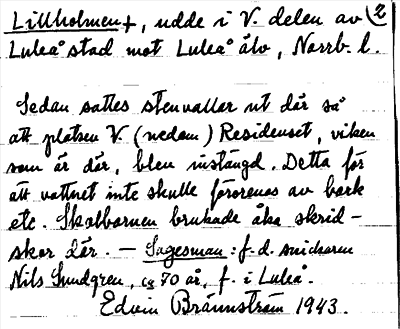 Lillholmen +, udde i V. delen av 2
Luleå stad mot Luleå älv, Norrb. l.
Sedan sattes stenvallar ut där så
att platsen V. (nedom) Residenset, viken
som är där, blev instängd. Detta för
att vattnet inte skulle förorenas av bark
etc. Skolbarnen brukade åka skrid-
skor där. — Sagesman: f.d. snickaren
Nils Sundgren, ca 70 år, f. i Luleå.
Edvin Brännström 1943.